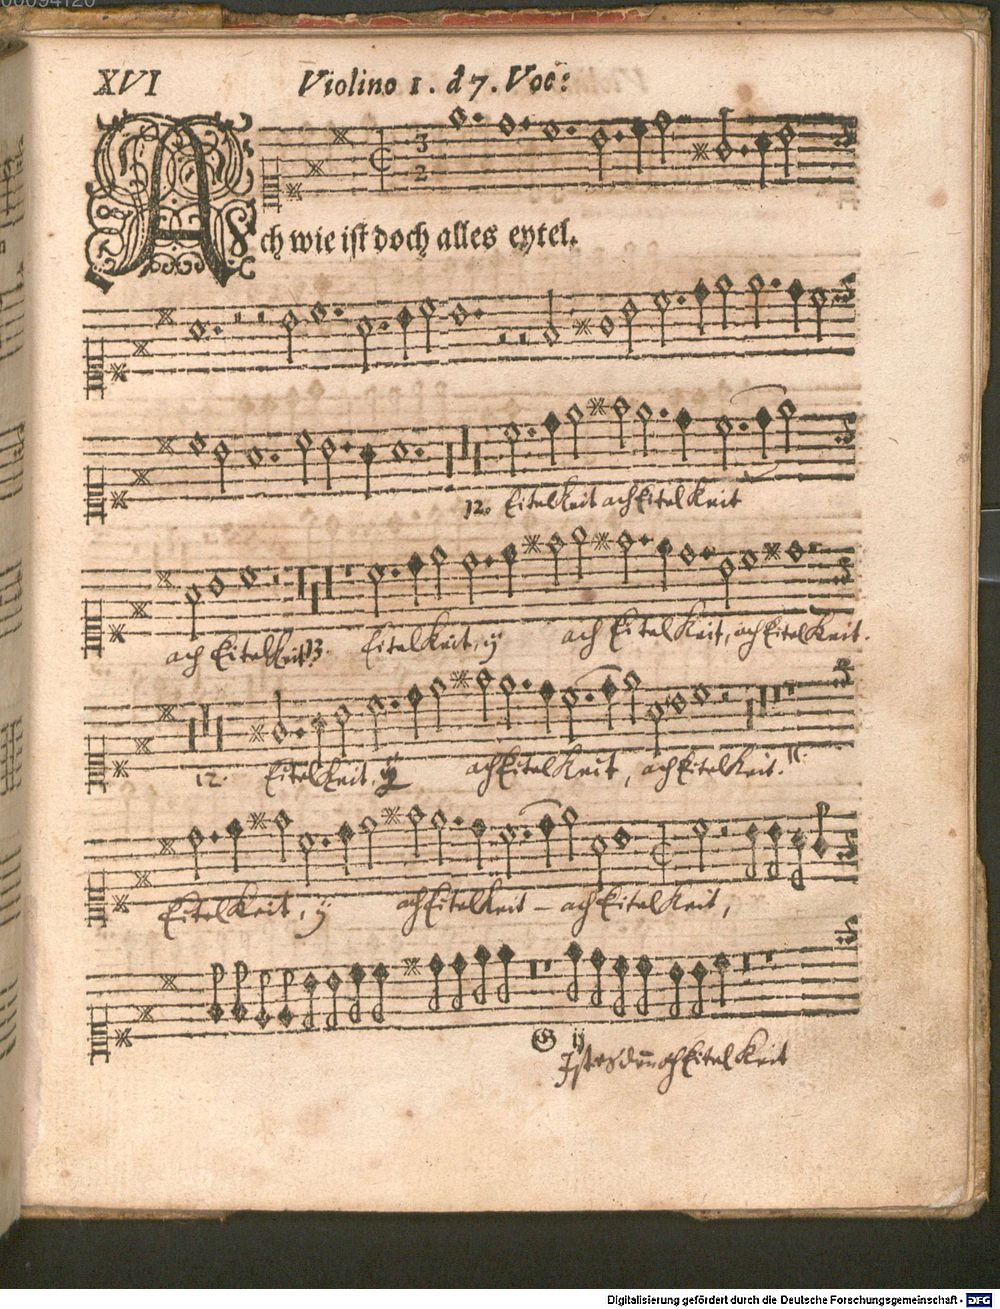 00094120
XVI Violino 1. â 7. Voc:
Ach wie ist doch alles eytel.
12. Eitelkeit ach Eitelkeit
ach Eitelkeit 13. Eitelkeit, ij ach Eitelkeit, ach Eitelkeit.
12. Eitelkeit, ij ach Eitelkeit, ach Eitelkeit.
Eitelkeit, ij ach Eitelkeit – ach Eitelkeit,
G ij
ach Eitelkeit
Digitalisierung gefördert durch die Deutsche Forschungsgemeinschaft - DFG